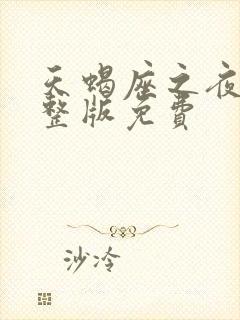 天蝎座之夜
整版免费
沙冷